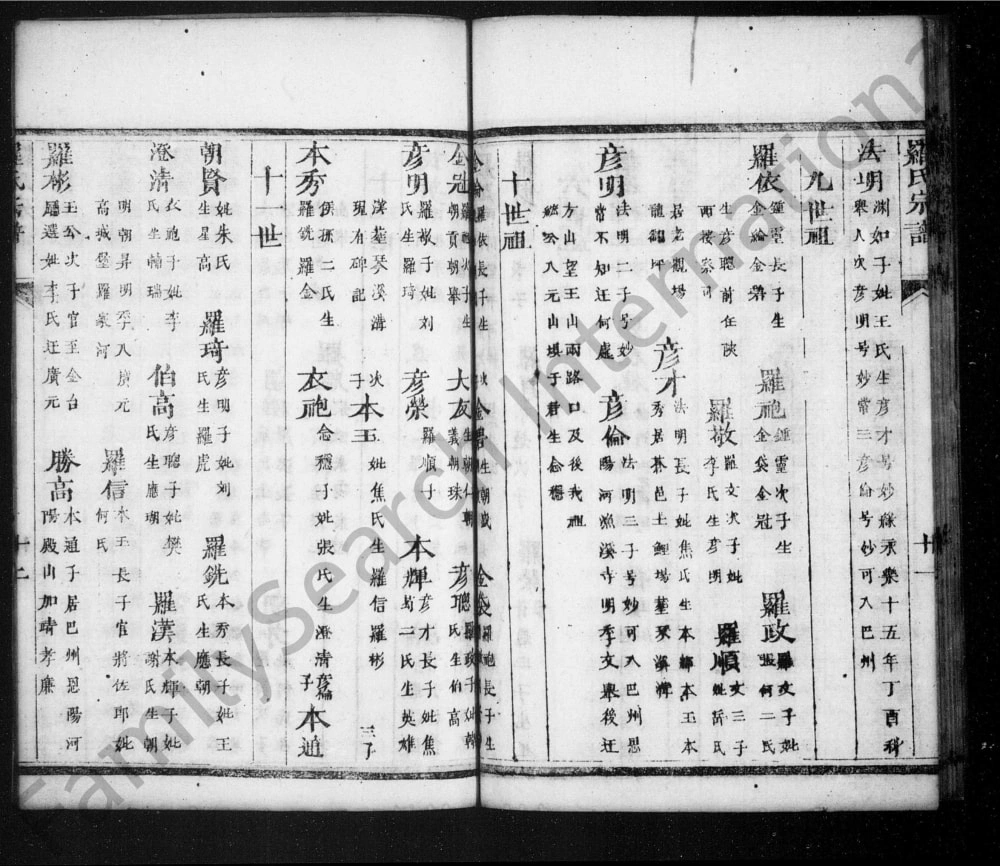 羅氏宗譜
廿一
法明 淵如子妣王氏生彥才号妙緣永樂十五年丁酉科
舉人次彥明号妙常三彥倫号妙可入巴州
九世祖
羅依 鍾靈長子生
金綸金碧
羅袍 鍾靈次子生
金袋金冠
羅政 羅文子妣
張何二氏
生彥聰前任陝
西按察司
羅敬 羅文次子妣
李氏生彥明
羅順 文三子
妣苟氏
居老觀場
龍歸坪
彥才 法明長子妣焦氏生本輝本玉本
秀居慕邑土鯉場
彥明 法明二子号妙
常不知迁何處
彥倫 法明三子号妙可入巴州恩
陽河漁溪寺明季文舉後迁
方山望王山兩路口及後我祖
念公入元山埧子君生念穩
十世祖
金綸 羅依長子生
金冠 羅袍次子生
朝貢朝舉
大友 生朝仁朝
義朝珠
金袋 羅袍長子生
彥聰 羅政子妣韓
氏生伯高
彥明 羅敬子妣刘
氏生羅琦
彥榮 羅順子
本輝 彥才長子妣焦
苟二氏生英雄
漢葬琴溪溝
現有碑記
本玉 次子妣焦氏生羅信羅彬
三子
本秀 侯孫二氏生
羅銑羅金
衣祂 念穩子妣張氏生澄清
本通 彥倫子
十一世
朝賢 妣朱氏
生星高
羅琦 彥明子妣刘
氏生羅虎
羅銑 本秀長子妣王
氏生應朝
澄清 衣祂子妣李
氏生輔瑞
伯高 彥聰子妣樊
氏生應瑚
羅漢 本輝子妣
謝氏生朝
明朝昇明季入廣元
高城堡羅家河
羅信 本玉長子官將佐郎妣
何氏
羅彬 王公次子官至金台
廳選妣李氏迁廣元
勝高 本通子居巴州恩陽河
陽殿山加靖孝廉
FamilySearch International